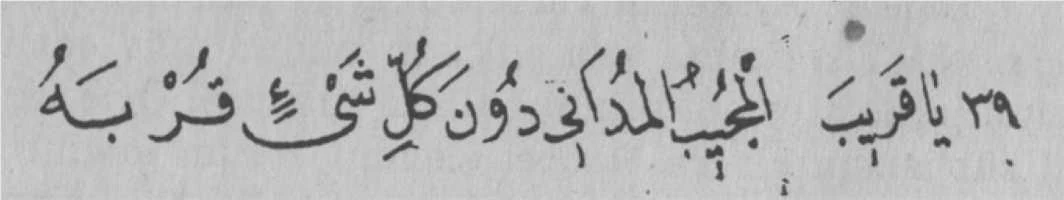 ٣٩ يٰا قَرِيبَ الْمجُيِبُ المدُاَنِي دوُنَ كُلِّ شَىْءٍ قُرْبَهُ